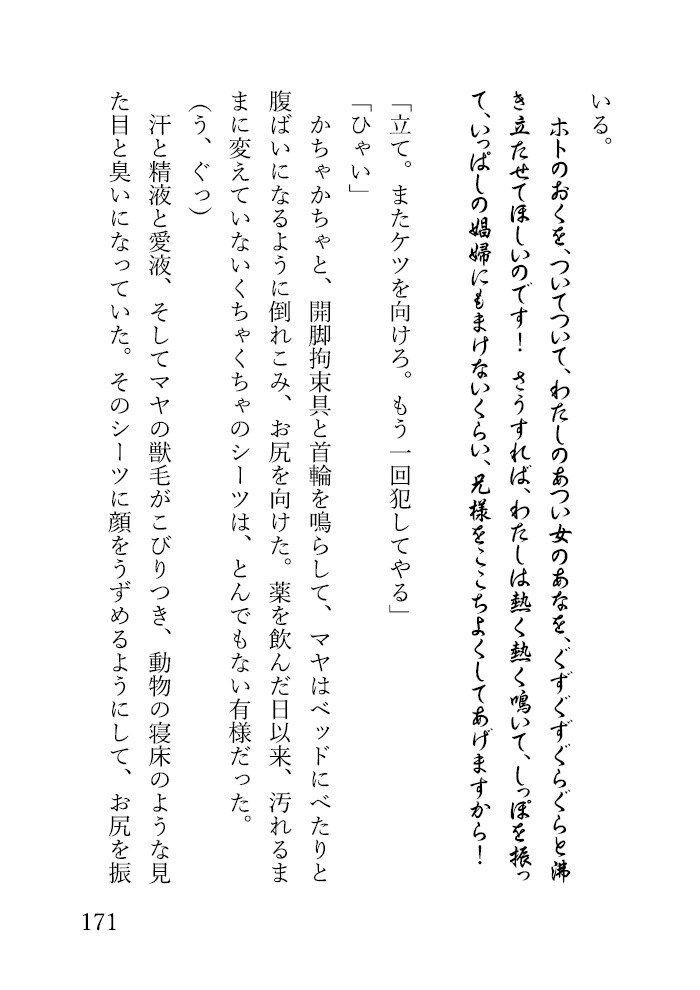 いる。
　ホトのおくを、ついてついて、わたしのあつい女のあなを、ぐずぐずぐらぐらと沸
き立たせてほしいのです！　さうすれば、わたしは熱く熱く鳴いて、しっぽを振っ
て、いっぱしの娼婦にもまけないくらい、兄様をここちよくしてあげますから！
「立て。またケツを向けろ。もう一回犯してやる」
「ひゃい」
　かちゃかちゃと、開脚拘束具と首輪を鳴らして、マヤはベッドにべたりと
腹ばいになるように倒れこみ、お尻を向けた。薬を飲んだ日以来、汚れるま
まに変えていないくちゃくちゃのシーツは、とんでもない有様だった。
（う、ぐっ）
　汗と精液と愛液、そしてマヤの獣毛がこびりつき、動物の寝床のような見
た目と臭いになっていた。そのシーツに顔をうずめるようにして、お尻を振
171